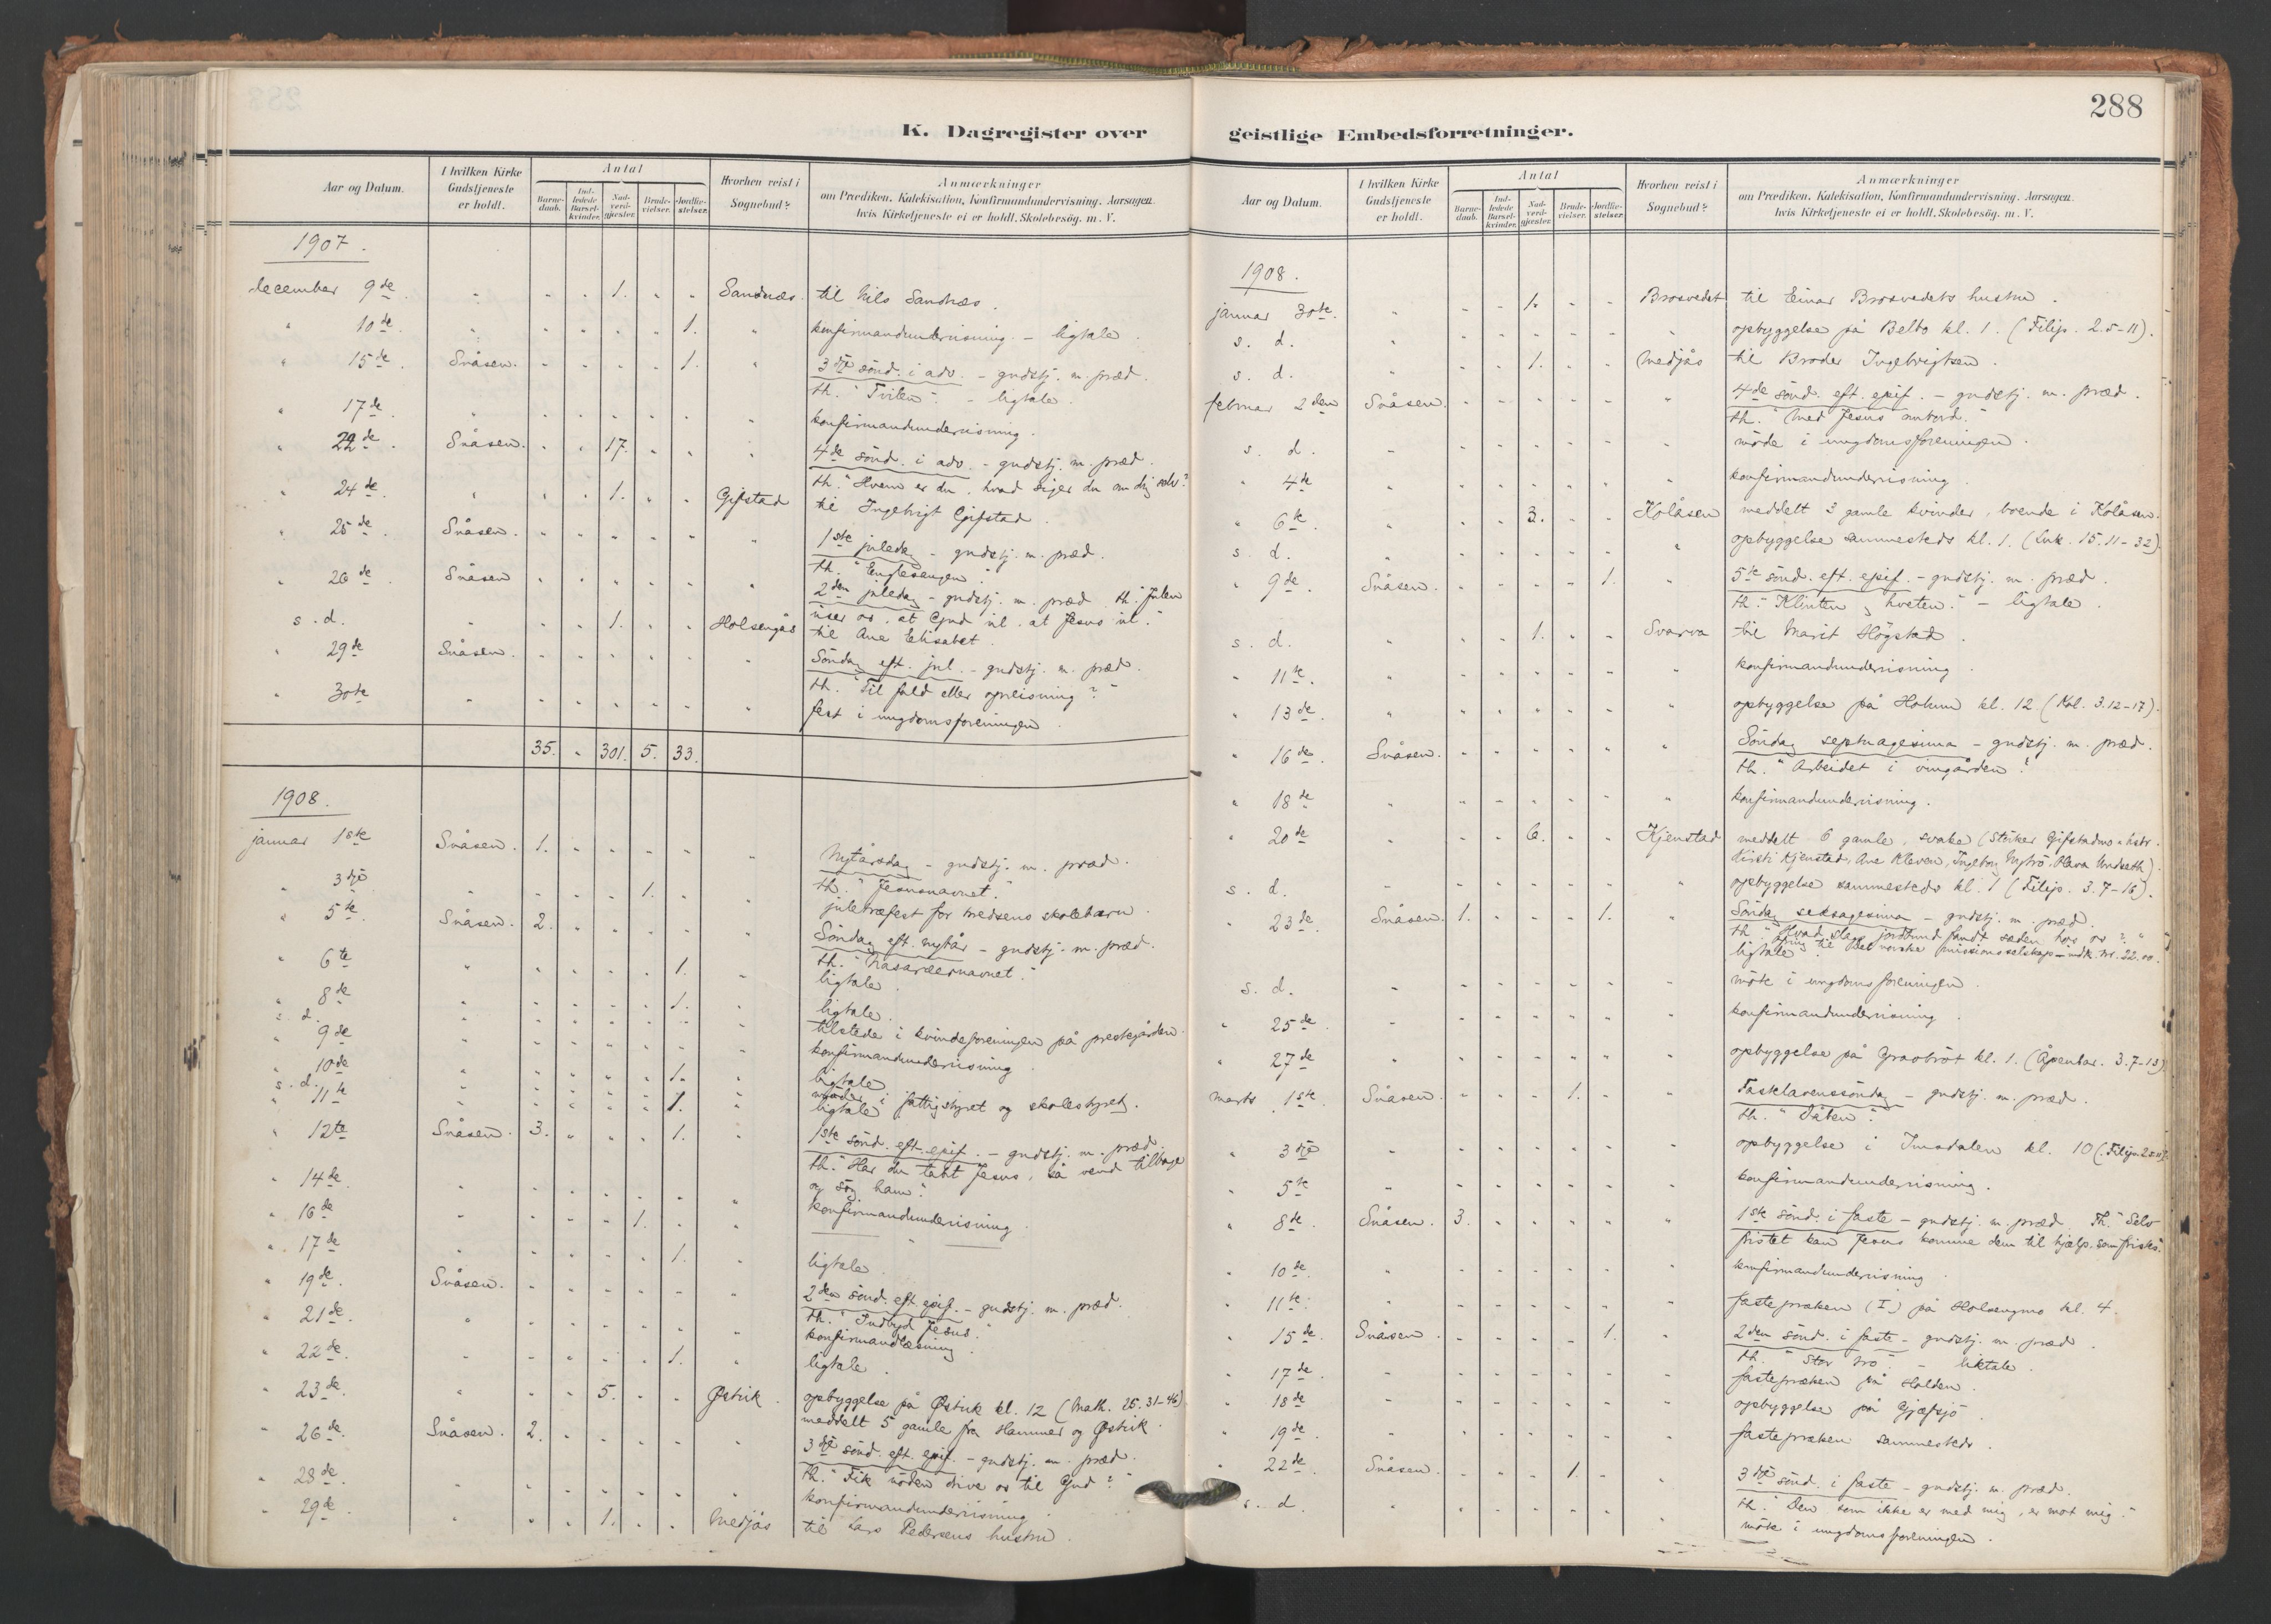 288
K. Dagregister over
Aar og Datum.
I hvilken Kirke Gudstjeneste er holdt.
Antal
Barne-daab.
Ind-ledede Barsel-kvinder.
Nad-verd-gjester.
Brude-vielser.
Jordfæ-stelser.
Hvorhen reist i Sognebud?
Anmærkninger
om Prædiken, Katekisation, Konfirmandundervisning, Aarsagen,
hvis Kirketjeneste ei er holdt, Skolebesög. m. V.
1907.
december 9de. " " " 1. " " Sandnæs. til Nils Sandnæs.
" 10de. " " " " " 1. " konfirmandundervisning – ligtale.
" 15de. Snåsen. " " " " 1. " 3dje sønd. i adv. – gudstj. m. præd.
th. "Tvilen". – ligtale.
" 17de. " " " " " " " konfirmandundervisning.
" 22de. Snåsen. " " 17. " " " 4de sønd. i adv. – gudstj. m. præd.
th. "Hvem er du, hvad siger du om dig selv?
" 24de. " " " 1. " " Gifstad til Ingebrigt Gifstad.
" 25de. Snåsen. " " " " " " 1ste juledag – gudstj. m. præd.
th. "Englesangen".
" 26de. Snåsen " " " " " " 2den juledag – gudstj. m. præd. th. "Julen
viser os, at Gud vil, at Jesus vil."
s. d. " " " 1. " " Holsengås til Ane Elisabet.
" 29de Snåsen. " " " " " " Søndag eft. jul. – gudstj. m. præd.
th. "Til fald eller opreisning?"
" 30te " " " " " " " fest i ungdomsforeningen.
35. " 301. 5. 33.
1908.
januar 1ste Snåsen. 1. " " " " " Nytårsdag – gudstj. m. præd.
th. "Jesusnavnet."
" 3dje " " " " 1. " " juletræfest for kredsens skolebarn.
" 5te. Snåsen. 2. " " " " " Søndag eft. nytår – gudstj. m. præd.
th. "Nasaræernavnet."
" 6te " " " " " 1. " ligtale.
" 8de " " " " " 1. " ligtale.
s. d. " " " " " " " tilstede i kvindeforeningen på prestegården.
" 9de " " " " " " " konfirmandundervisning.
" 10de " " " " " 1. " ligtale
s. d. " " " " " " " møder i fattigstyret og skolestyret.
" 11te " " " " " 1. " ligtale
" 12te Snåsen. 3. " " " 1. " 1ste sønd. eft. epif. – gudstj. m. præd.
th. "Har du tabt Jesus, så vend tilbage
og søg ham".
" 14de. " " " " " " " konfirmandundervisning.
" 16de " " " " 1. " " ––– " –––
" 17de " " " " " 1. " ligtale.
" 19de. Snåsen. " " " " " " 2den sønd. eft. epif. – gudstj. m. præd.
th. "Indbyd Jesus."
" 21de. " " " " " " " konfirmandlæsning.
" 22de. " " " " " 1. " ligtale.
" 23de. " " " 5. " " Østvik. opbyggelse på Østvik kl. 12 (Math. 25. 31-46)
meddelt 5 gamle fra Hammer og Østvik.
" 26de. Snåsen. 2. " " " " " 3dje sønd. eft. epif. – gudstj. m. præd.
th. "Fik nøden drive os til Gud?"
" 28de. " " " " " " " konfirmandundervisning.
" 29de. " " " 1. " " Medjås til Lars Pedersens hustru.
geistlige Embedsforretninger.
Aar og Datum.
I hvilken Kirke Gudstjeneste er holdt.
Antal
Barne-daab.
Ind-ledede Barsel-kvinder.
Nad-verd-gjester.
Brude-vielser.
Jordfæ-stelser.
Hvorhen reist i Sognebud?
Anmærkninger
om Prædiken, Katekisation, Konfirmandundervisning, Aarsagen,
hvis Kirketjeneste ei er holdt, Skolebesög. m. V.
1908.
januar 30te. " " " 1. " " Brosvedet til Einar Brosvedets hustru.
s. d. " " " " " " " opbyggelse på Belbo kl. 1. (Filip. 2.5-11).
s. d. " " " 1. " " Medjås til Broder Ingebrigtsen.
februar 2den Snåsen. " " " " " " 4de sønd. eft. epif. – gudstj. m. præd.
th. "Med Jesus ombord."
s. d. " " " " " " " møde i ungdomsforeningen.
" 4de " " " " " " " konfirmandundervisning.
" 6te. " " " 3. " " Kolåsen meddelt 3 gamle kvinder, boende i Kolåsen.
s. d. " " " " " " " opbyggelse sammesteds kl. 1. (Luk. 15. 11-32).
" 9de. Snåsen. " " " " 1. " 5te sønd. eft. epif. – gudstj. m. præd.
th. "Klinten og hveten." – ligtale.
s. d. " " " 1. " " Svarva til Marit Høgstad.
" 11te. " " " " " " " konfirmandundervisning.
" 13de. " " " " " " " opbyggelse på Holum kl. 12. (Kol. 3.12-17).
" 16de. Snåsen. " " " " " " Søndag septuagesima – gudstj. m. præd.
th. "Arbeidet i vingården".
" 18de " " " " " " " konfirmandundervisning.
" 20de " " " 6. " " Kjenstad meddelt 6 gamle, svake (Stærker Gifstadmo + hstr.
Kirsti Kjenstad, Ane Kleven, Ingeborg Nytrø, Undseth).
s. d. " " " " " " " opbyggelse sammesteds kl. 1 (Filip. 3.7-16).
" 23de. Snåsen. 1. " " " 1. " Søndag seksagesima – gudstj. m. præd.
th. "Hvad slags jordbund fandt sæden hos os?"
ligtale. ofring til Det norske missionsselskap – indk. kr. 22.00.
s. d. " " " " " " " møte i ungdomsforeningen.
" 25de. " " " " " " " konfirmandundervisning.
" 27de " " " " " " " opbyggelse på Graabrøt kl. 1. (Åpenbar. 3.7-13)
marts 1ste. Snåsen. " " " 1. " " Fastelavenssøndag – gudstj. m. præd.
th. "Dåben".
" 3dje " " " " " " " opbyggelse i Imsdalen kl. 10
" 5te " " " " " " " konfirmandundervisning.
" 8de. Snåsen. 3. " " " " " 1ste sønd. i faste – gudstj. m. præd. Th. "Selv
fristet kan Jesus komme dem til hjælp, som fristes".
" 10de. " " " " " " " konfirmandundervisning.
" 11te. " " " " " " " fastepræken (I) på Holsengmo kl. 4.
" 15de. Snåsen " " " " 1. " 2den sønd. i faste – gudstj. m. præd.
th. "Stor tro". – liktale.
" 17de. " " " " " " " fastepræken på Holden.
" 18de " " " " " " " opbyggelse på Gjæfsjø.
" 19de " " " " " " " fastepræken sammesteds.
" 22de. Snåsen. " " " 1. " " 3dje sønd. i faste – gudstj. m. præd.
th. "Den som ikke er med mig, er mot mig."
s. d. " " " " " " " møte i ungdomsforeningen.